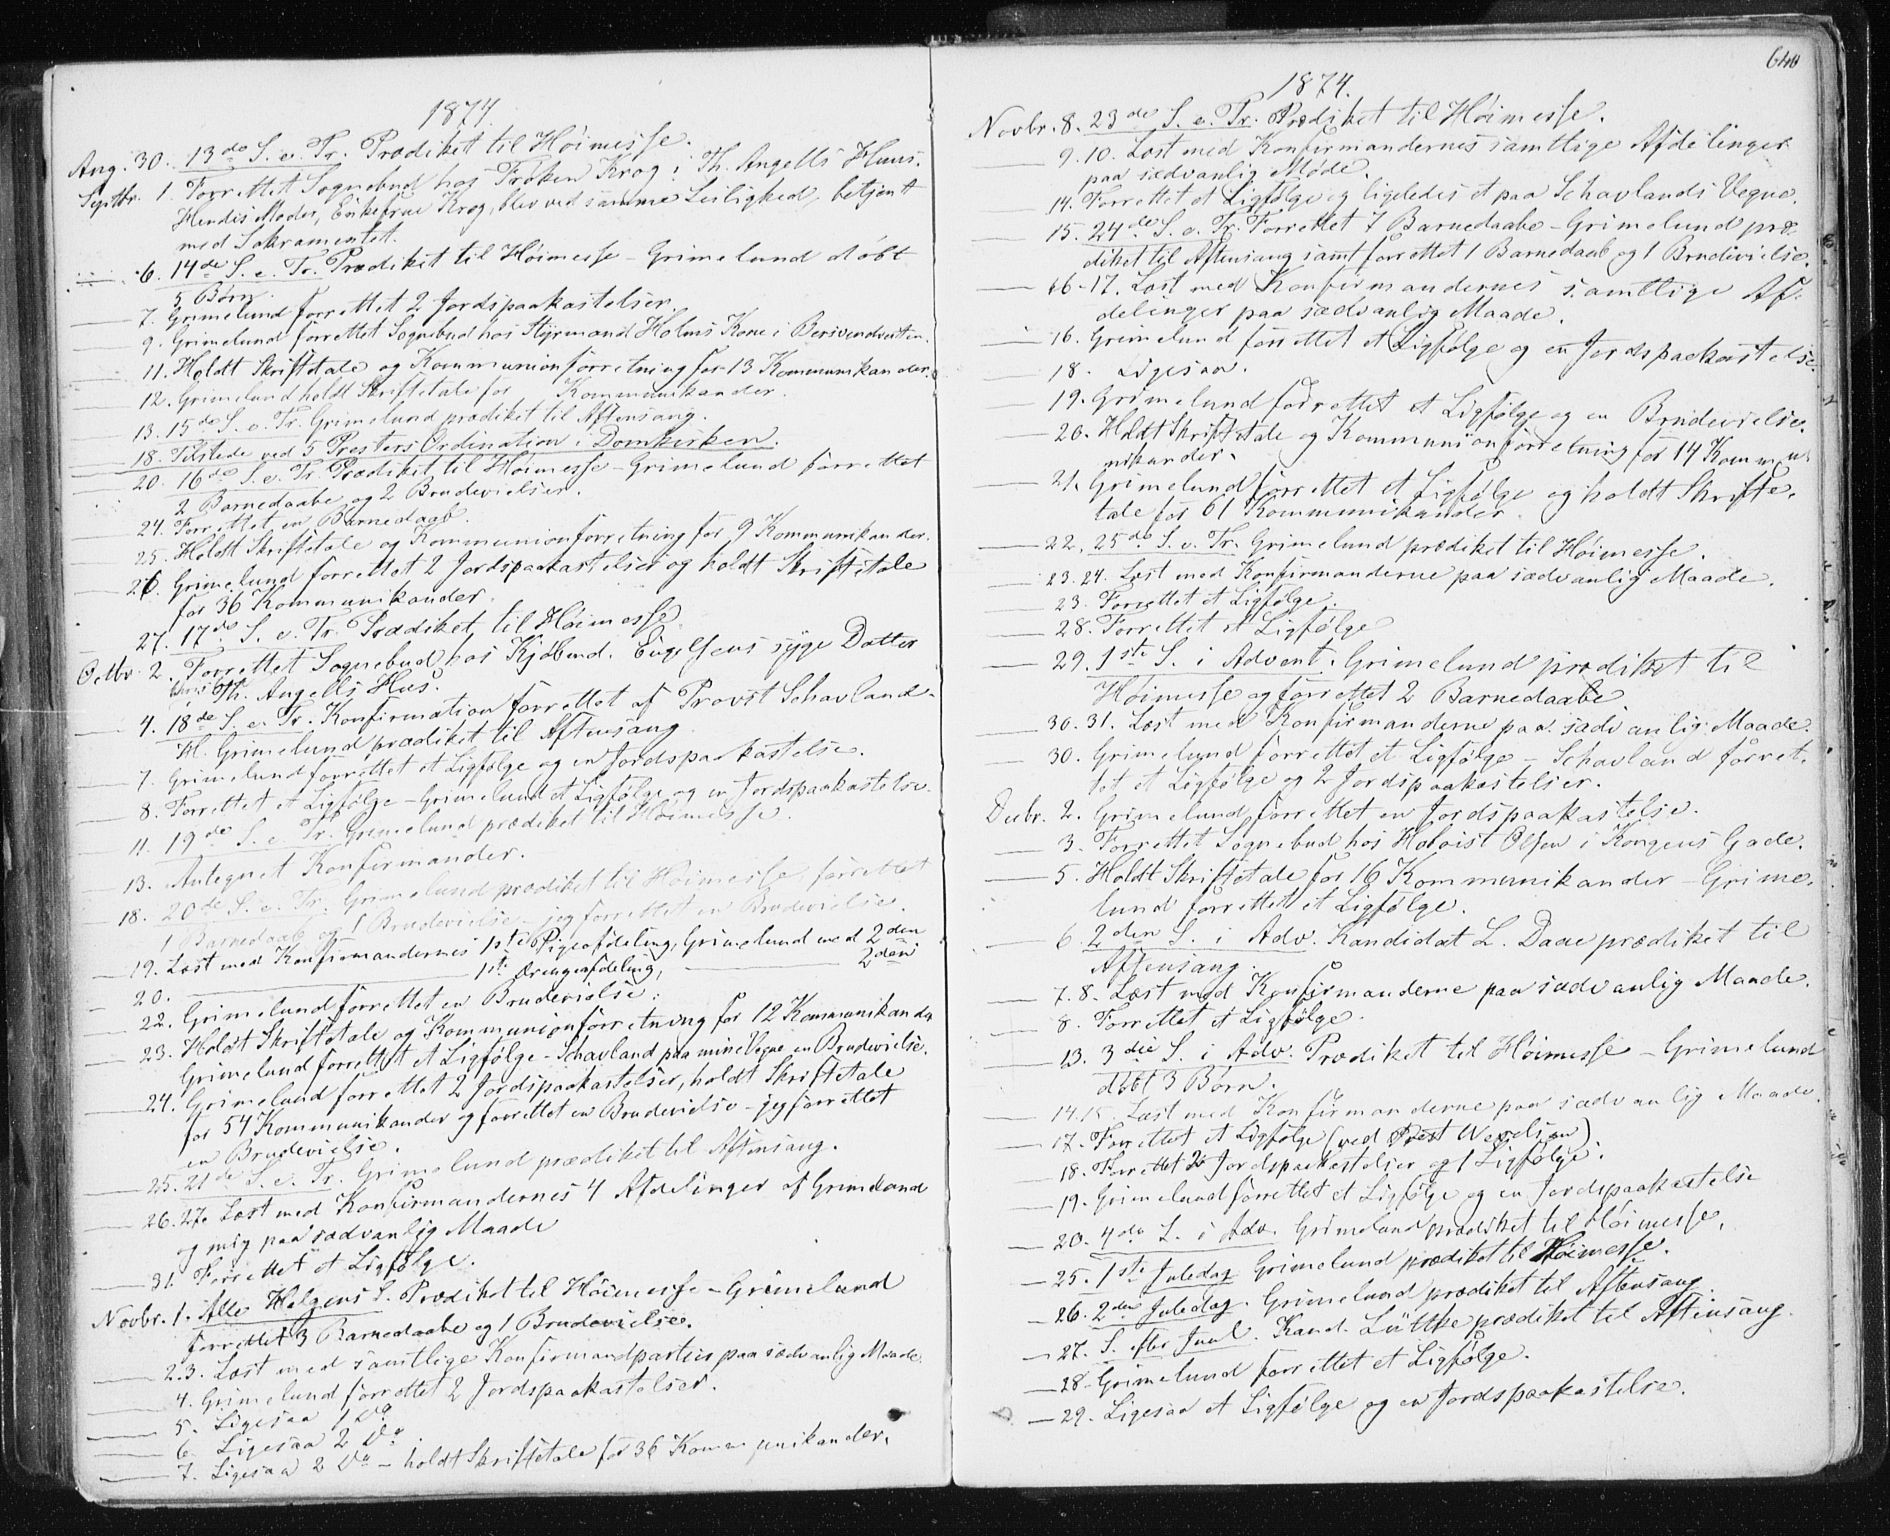 1874.
Aug. 30. 13de S. e. Tr. Prædiket til Høimesse.
Septbr. 1. Forrettet Sognebud hos Frøken Krog i Th. Angells Huus.
Hendes Moder, Enkefrue Krog, blev ved samme Leilighed betjent
med Sakramentet.
6. 14de S. e. Tr. Prædiket til Høimesse - Grimelund døbt
5 Børn.
7. Grimelund forrettet 2 Jordspaakastelser.
9. Grimelund forrettet Sognebud hos Styrmand Holms Kone i
11. Holdt Skriftetale og Kommunionforretning for 13 Kommunikander.
12. Grimelund holdt Skriftetale for Kommunikander.
13. 15de S. e. Tr. Grimelund prædiket til Aftensang.
18. Tilstede ved 5 Presters Ordination i Domkirken.
20. 16de S. e. Tr. Prædiket til Høimesse - Grimelund forrettet
2 Barnedaabe og 2 Brudevielser.
24. Forrettet en Barnedaab.
25. Holdt Skriftetale og Kommunionforretning for 9 Kommunikander.
26. Grimelund forrettet 2 Jordspaakastelser og holdt Skriftetale
for 36 Kommunikander.
27. 17de S. e. Tr. Prædiket til Høimesse.
Octbr. 2. Forrettet Sognebud hos Kjøbmd. Engelsens syge Datter
Th. Angells Hus.
4. 18de S. e. Tr. Konfirmation forrettet af Provst Schavland.
H. Grimelund prædiket til Aftensang.
7. Grimelund forrettet et Ligfølge og en Jordspaakastelse.
8. Forrettet et Ligfølge - Grimelund et Ligfølge og en Jordspaakastelse.
11. 19de S. e. Tr. Grimelund prædiket til Høimesse.
13. Antegnet Konfirmander.
18. 20de S. e. Tr. Grimelund prædiket til Høimesse, forrettet
1 Barnedaab og 1 Brudevielse - jeg forrettet en Brudevielse.
19. Læst med Konfirmandernes 1ste Pigeafdeling, Grimelund med 2den
20. 1ste Drengeafdeling, 2den
22. Grimelund forrettet en Brudevielse.
23. Holdt Skriftetale og Kommunionforretning for 12 Kommunikander
Grimelund forrettet et Ligfølge - Schavland paa mine Vegne en Brudevielse.
24. Grimelund forrettet 2 Jordspaakastelser, holdt Skriftetale
for 54 Kommunikander og forrettet en Brudevielse - jeg forrettet
en Brudevielse.
25. 21de S. e. Tr. Grimelund prædiket til Aftensang.
26. 27. Læst med Konfirmandernes 4 Afdelinger af Grimelund
og mig paa sædvanlig Maade
31. Forrettet et Ligfølge.
Novbr. 1. Alle Helgens S. Prædiket til Høimesse - Grimelund
forrettet 3 Barnedaabe og 1 Brudevielse.
2.3. Læst med samtlige Konfirmandpartier paa sædvanlig Maade.
4. Grimelund forrettet 2 Jordspaakastelser.
5. Ligesaa 1 Do
6. Ligesaa 2 Do
7. Ligesaa 2 Do - holdt Skriftetale for 36 Kommunikander.
640
1874.
Novbr. 8. 23de S. e. Tr. Prædiket til Høimesse.
9. 10. Læst med Konfirmandernes samtlige Afdelinger
paa sædvanlig Møde.
14. Forrettet et Ligfølge og ligeledes et paa Schavlands Vegne.
15. 24de S. e. Tr. Forrettet 7 Barnedaabe - Grimelund præ-
diket til Aftensang samt forrettet 1 Barnedaab og 1 Brudevielse.
16-17. Læst med Konfirmandernes samtlige Af-
delinger paa sædvanlig Maade.
16. Grimelund forrettet et Ligfølge og en Jordspaakastelse.
18. Ligesaa.
19. Grimelund forrettet et Ligfølge og en Brudevielse.
20. Holdt Skriftetale og Kommunionforretning for 14 Kommu-
nikander.
21. Grimelund forrettet et Ligfølge og holdt Skrifte-
tale for 61 Kommunikander.
22. 25de S. e. Tr. Grimelund prædiket til Høimesse.
23. 24. Læst med Konfirmanderne paa sædvanlig Maade.
23. Forrettet et Ligfølge.
28. Forrettet et Ligfølge
29. 1ste S. i Advent. Grimelund prædiket til
Høimesse og forrettet 2 Barnedaabe.
30. 31. Læst med Konfirmanderne paa sædvanlig Maade.
30. Grimelund forrettet et Ligfølge - Schavland forret-
tet et Ligfølge og 2 Jordspaakastelser.
Decbr. 2. Grimelund forrettet en Jordspaakastelse.
3. Forrettet Sognebud hos Olsen i Kongens Gade.
5. Holdt Skriftetale for 16 Kommunikander - Grime-
lund forrettet et Ligfølge.
6. 2den S. i Adv. Kandidat L. Daae prædiket til
Aftensang.
7. 8. Læst med Konfirmanderne paa sædvanlig Maade.
8. Forrettet et Ligfølge.
13. 3die S. i Adv. Prædiket til Høimesse - Grimelund
døbt 3 Børn.
14. 15. Læst med Konfirmanderne paa sædvanlig Maade.
17. Forrettet et Ligfølge (ved Prest Wexelsen).
18. Forrettet 2 Jordspaakastelser og 1 Ligfølge.
19. Grimelund forrettet et Ligfølge og en Jordspaakastelse
20. 4de S. i Adv. Grimelund prædiket til Høimesse.
25. 1ste Juledag Grimelund prædiket til Høimesse.
26. 2den Juledag. Grimelund prædiket til Aftensang.
27. S. efter Juul. Kand. Lüttke prædiket til Aftensang.
28. Grimelund forrettet et Ligfølge.
29. Ligesaa et Ligfølge og en Jordspaakastelse.